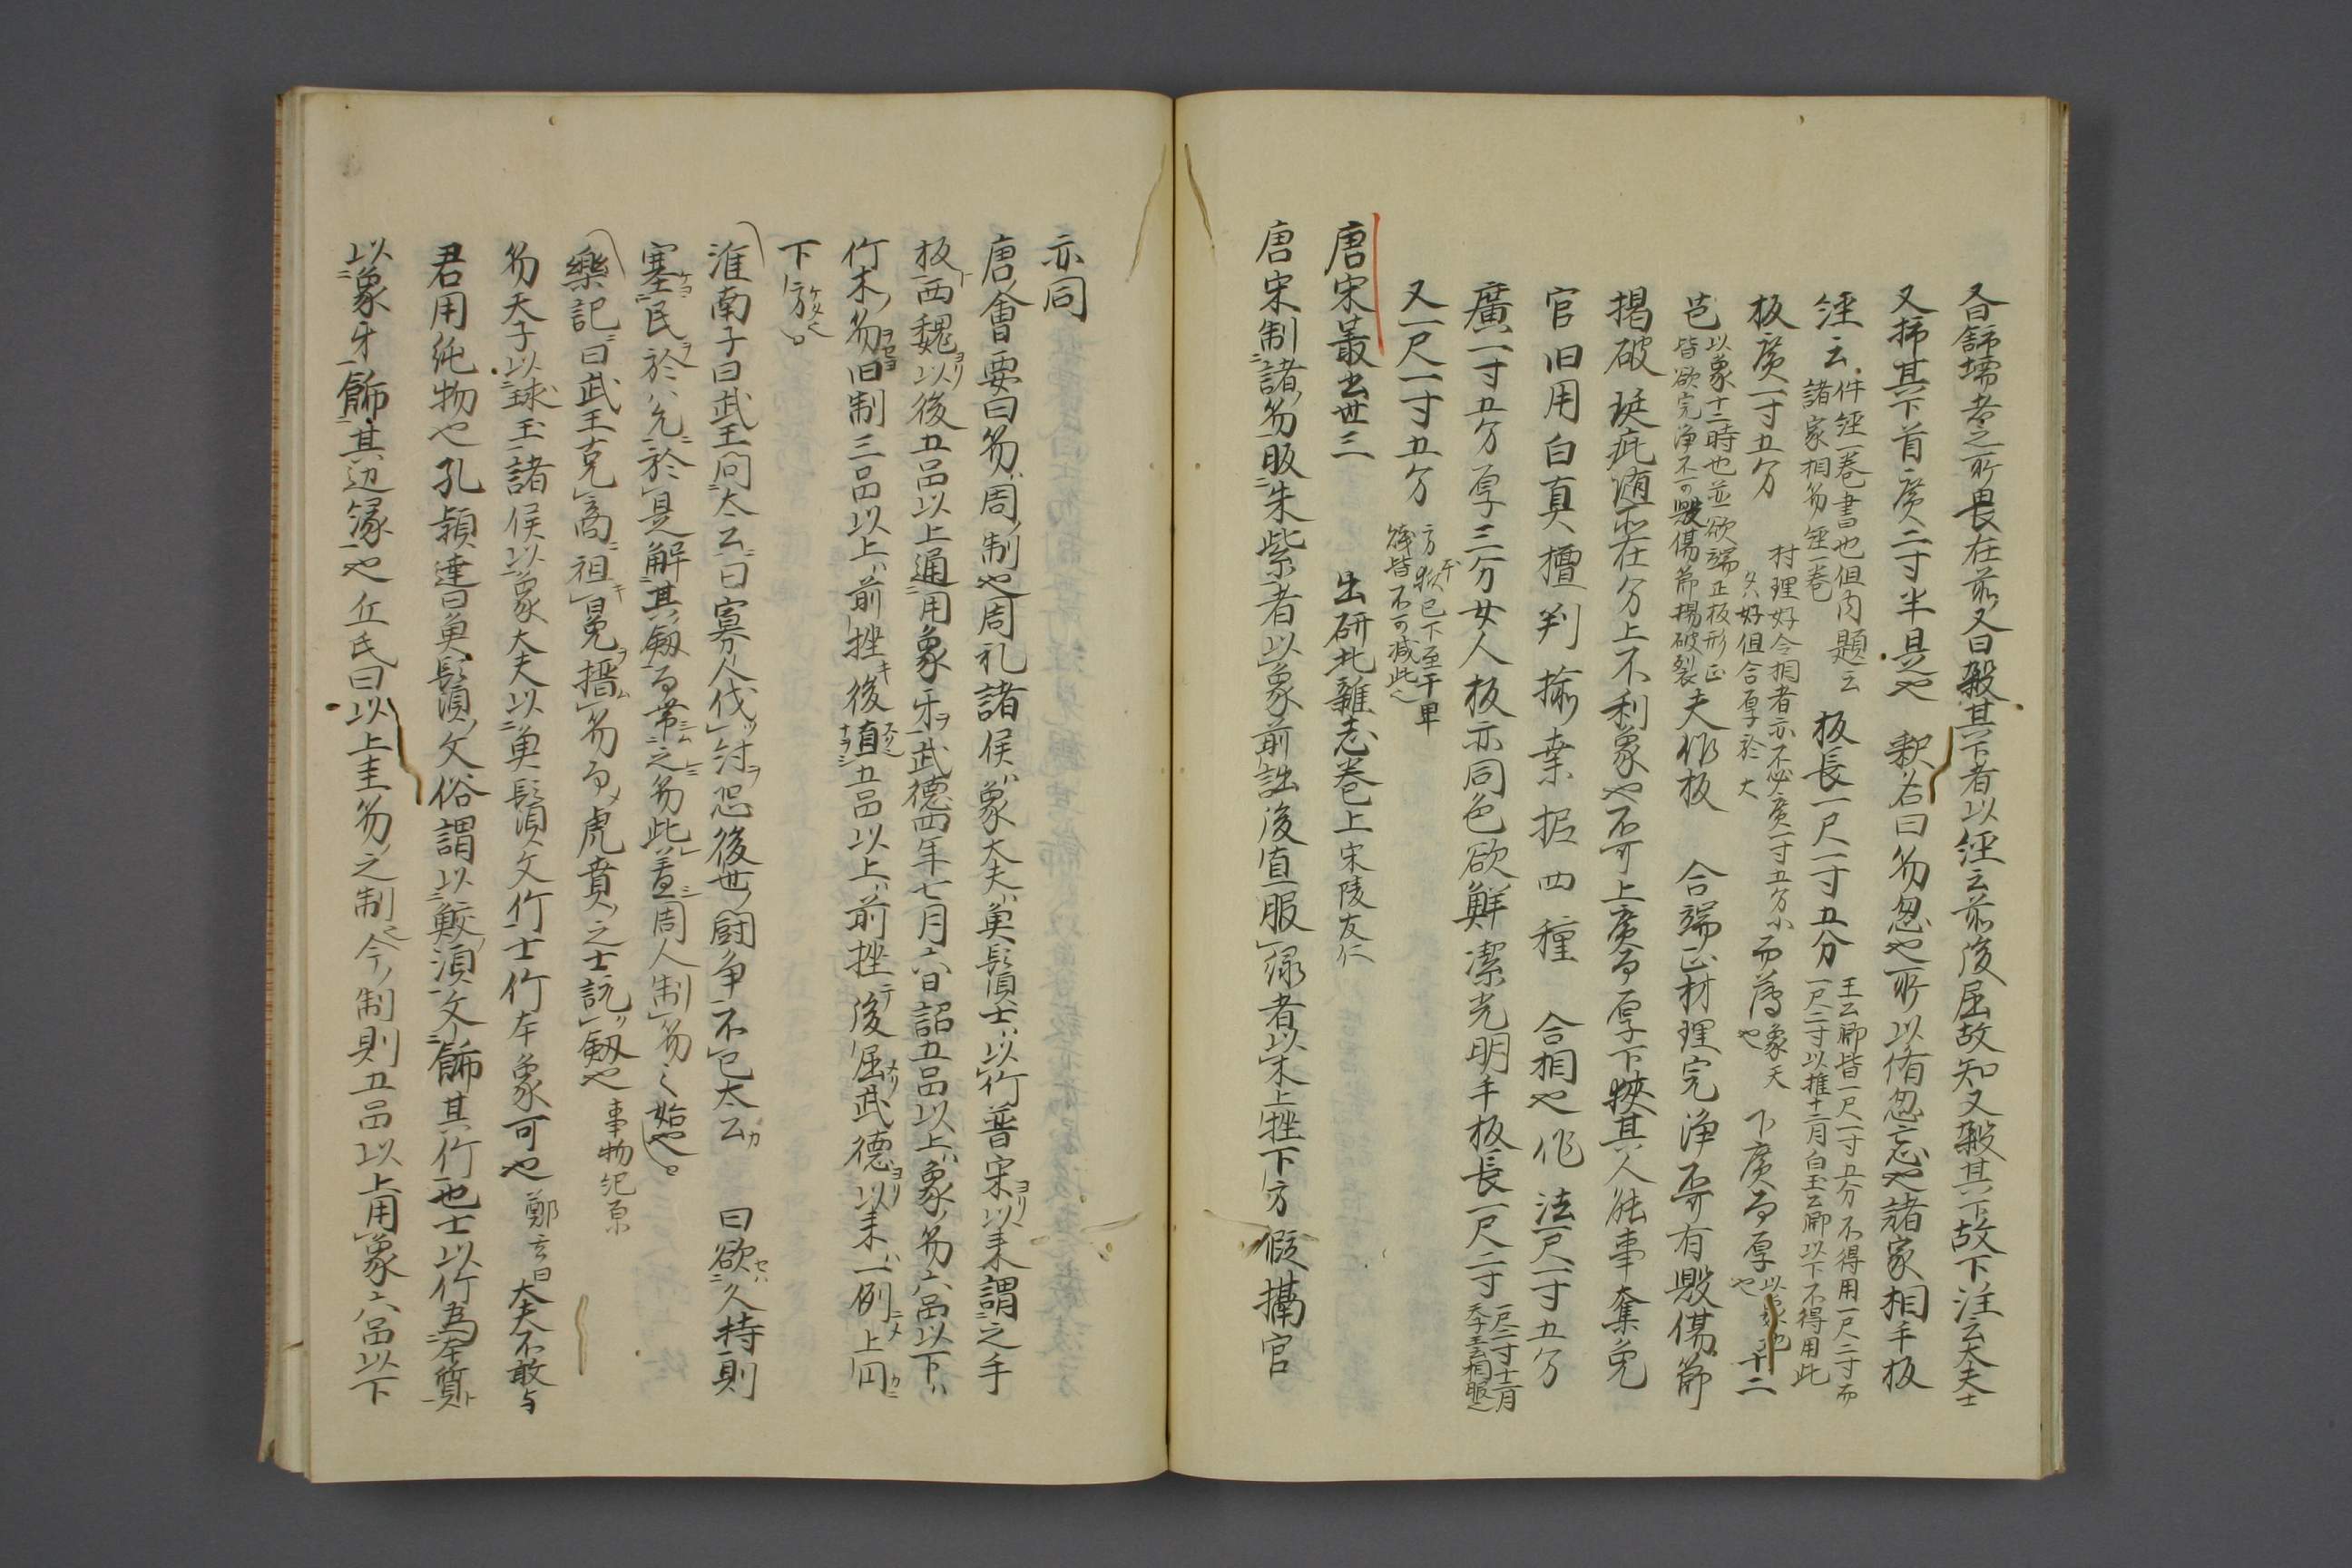 又曰舒埽者之所畏在前又曰殺其下者以經云前後屈故知又殺其下故下注云大夫士
又抪其下首廣二寸半是也 釈名曰笏忽也所以備忽忘也諸家相手板
經云 件經一卷書也但内題云
諸家相笏經一卷 板長一尺一寸五分 王公卿皆一尺一寸五分不得用一尺二寸而
一尺二寸以推十二月自王公卿以下不得用此
板廣一寸五分 村理好令相者亦不必廣一寸五分小
久好但合厚於大 而薄 象天
也 下廣而厚 也 十二
芭 以象十二時也並欲端正板形正
皆欲完浄不可毀傷節揚破裂 夫作板 合端正材理完浄不可有毀傷節
揚破瑕疵随所在分上不利象也不可上廣而厚下狹其人能事奪免
官旧用白真檀判揄桒据四種 合相也作法一尺一寸五分
廣一寸五分厚三分女人板亦同色欲鮮潔光明手板長一尺二寸 一尺二寸十二月
天子王公相服之
又一尺一寸五分 方 已下至干畢
皆不可減此之
唐宋叢書卅三 出研北雜志卷上 宋陵友仁
唐宋制諸笏服朱紫者以象前詘後直服緑者以木上挫下方假攝官
亦同
唐會要曰笏周制也周礼諸侯象大夫魚鬚士以竹晉宋以来謂之手
板西魏以後五品以上通用象牙武德四年七月六日詔五品以上象笏六品以下
竹木笏旧制三品以上前挫後直五品以上前挫後屈武德以来一例上円
下方
淮南子曰武王同太公曰寡人伐紂恐後世闘争不已太公 曰欲久持則
塞民於兊於是解其劔而帯之笏此盖周人制笏之始也
樂記曰武王克商裨冕搢笏而虎賁之士説劔也 事物紀原
笏天子以球玉諸侯以象大夫以魚鬚文竹士竹本象可也 鄭玄曰 大夫不敢与
君用純物也孔頴達曰魚鬚文俗謂以鮫湏文飾其竹也士以竹為本質
以象牙飾其辺縁也丘氏曰以上圭笏之制今制則五品以上用象六品以下